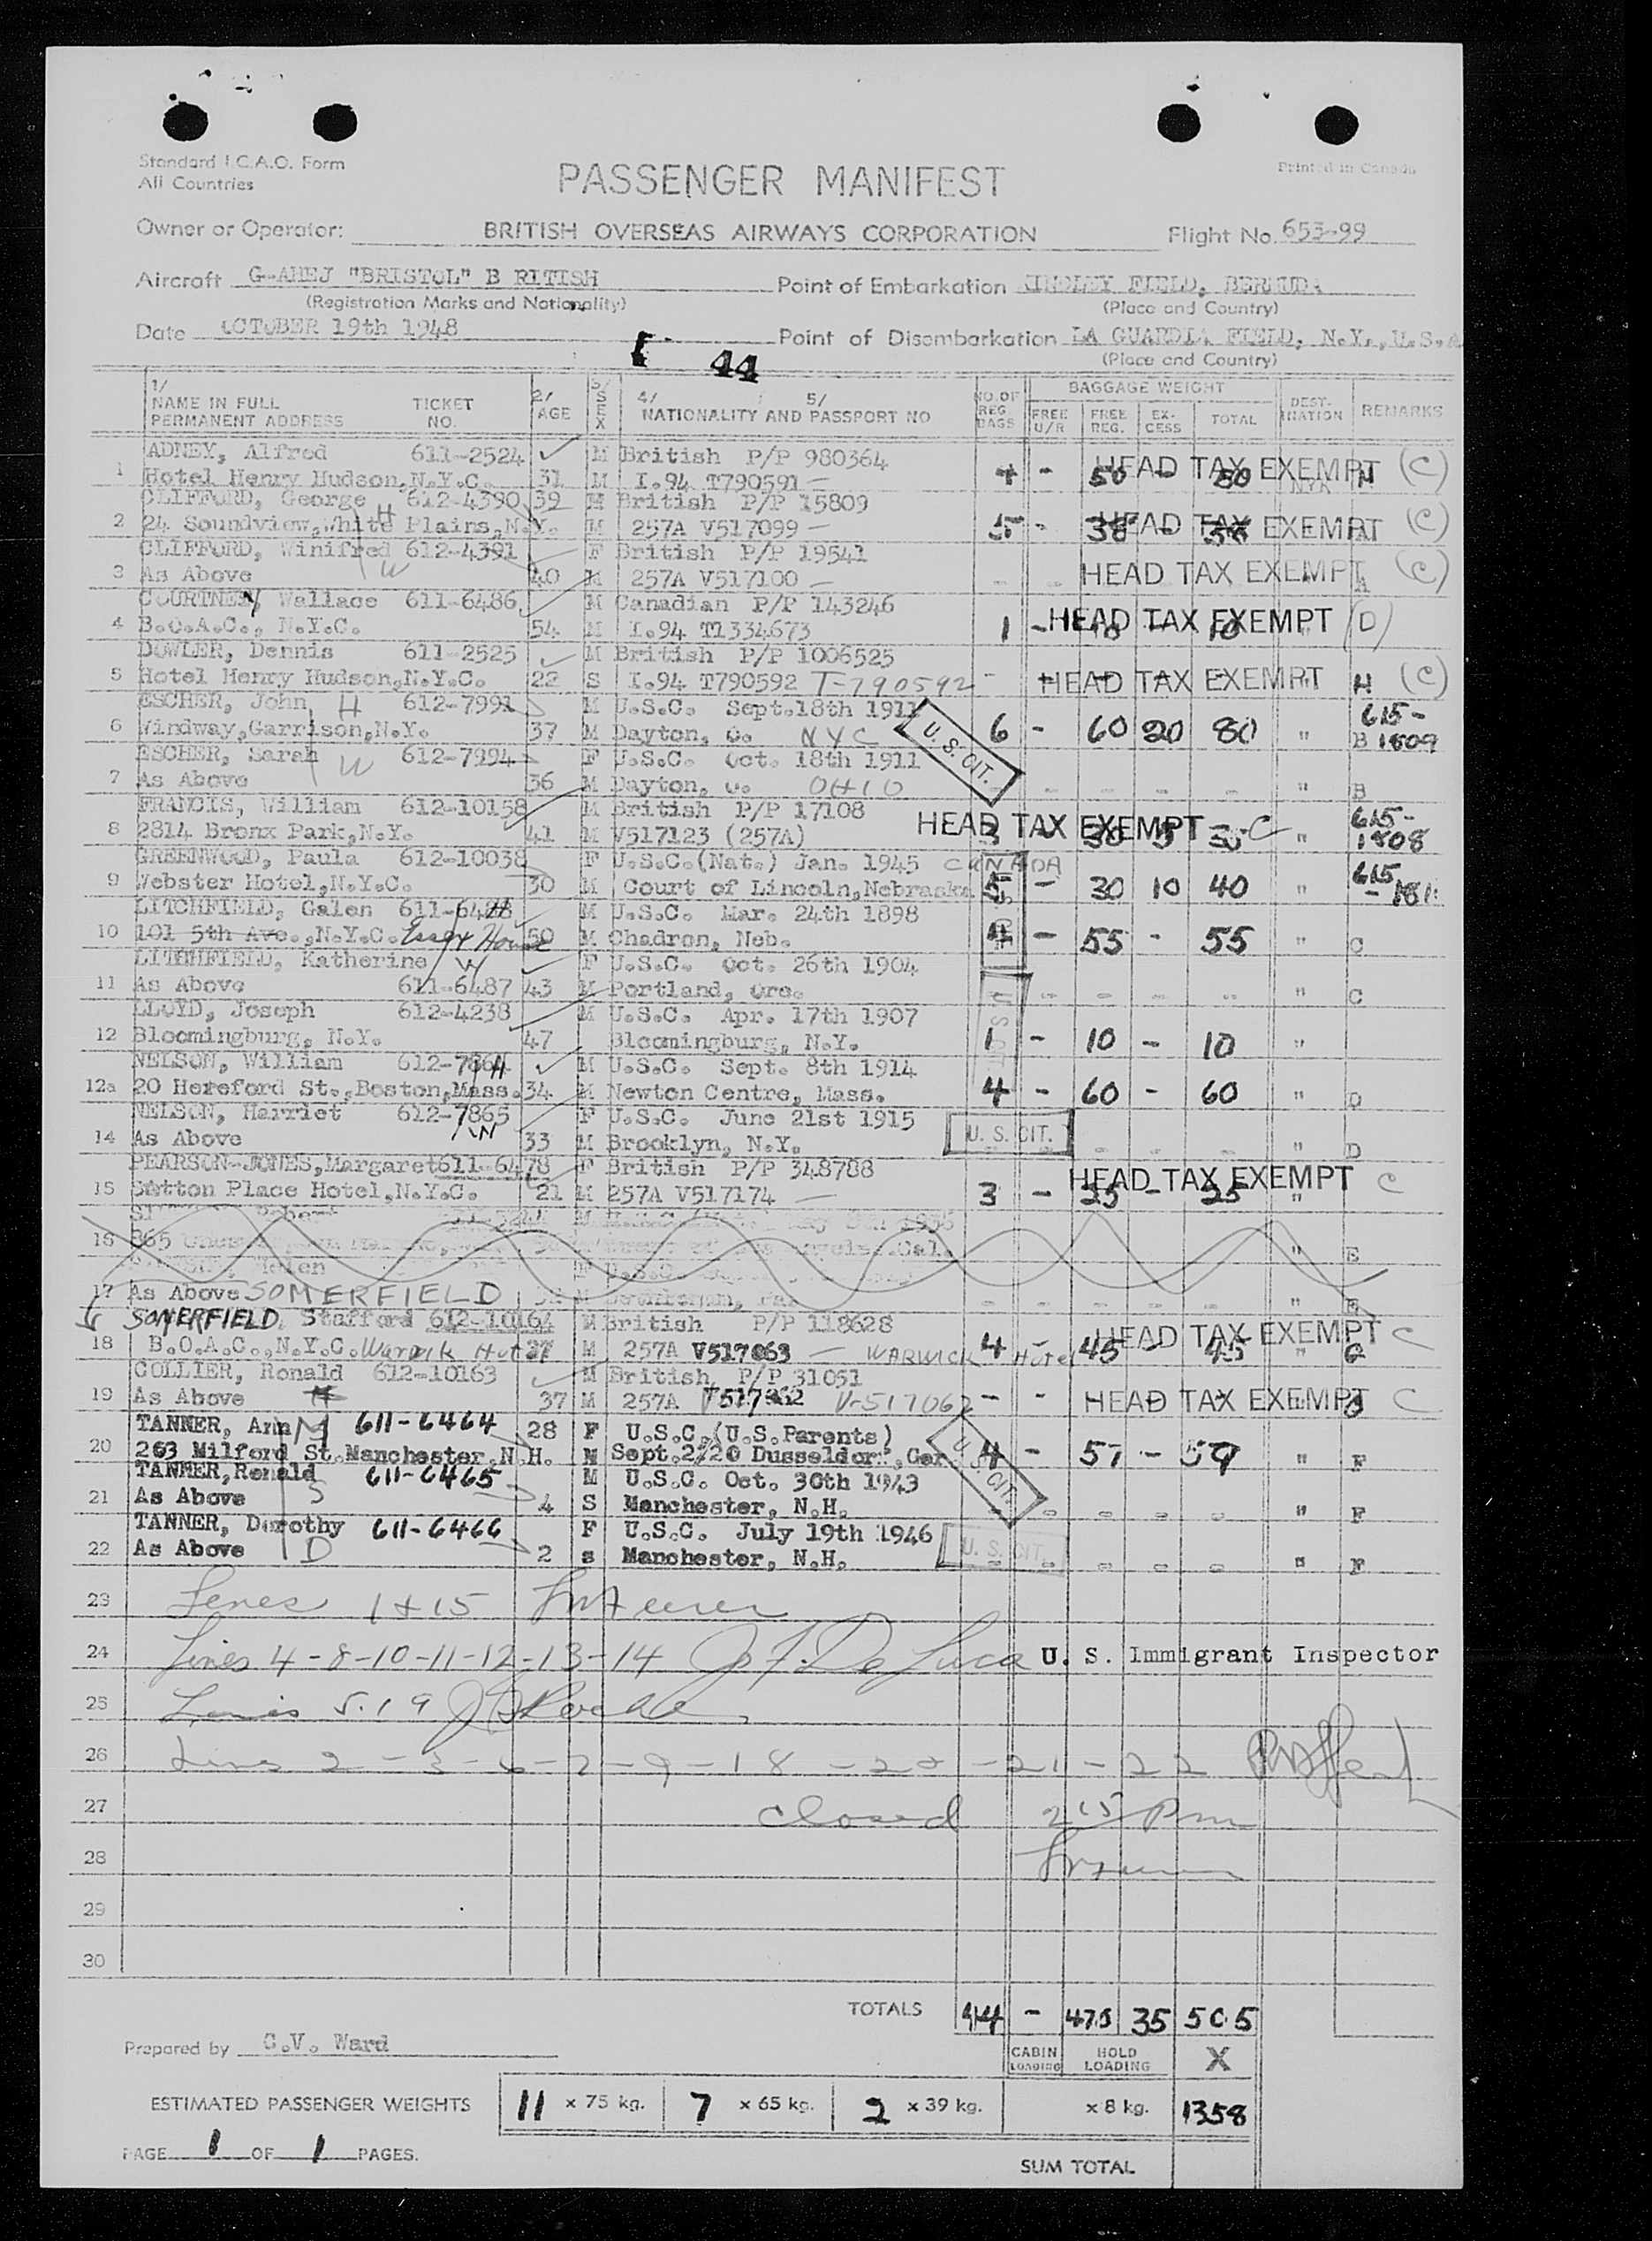 Standard I.C.A.O. Form
All Countries
PASSENGER MANIFEST
Printed in Canada
Owner or Operator: BRITISH OVERSEAS AIRWAYS CORPORATION Flight No. 653-99
Aircraft G-AHEJ "BRISTOL" B RITISH Point of Embarkation KINDLEY FIELD, BERMUDA
(Registration Marks and Nationality) (Place and Country)
Date OCTOBER 19th 1948 Point of Disembarkation LA GUARDIA FIELD, N.Y., U.S.A
(Place and Country)
44
1/ NAME IN FULL PERMANENT ADDRESS TICKET NO. 2/ AGE 3/ SEX 4/ 5/ NATIONALITY AND PASSPORT NO NO. OF REG. BAGS BAGGAGE WEIGHT FREE U/R FREE REG. EX-CESS TOTAL DEST-INATION REMARKS
ADNEY, Alfred 611-2524 M British P/P 980364
1 Hotel Henry Hudson, N.Y.C. 31 M I.94 T790591 — 4 - 50 - 50 HEAD TAX EXEMPT NYK H (C)
CLIFFORD, George H 612-4390 39 M British P/P 15809
2 24 Soundview, White Plains, N.Y. M 257A V517099 — 5 - 38 HEAD TAX EXEMPT A (C)
CLIFFORD, Winifred W 612-4391 F British P/P 19541
3 As Above 40 M 257A V517100 — - - HEAD TAX EXEMPT A (C)
COURTNEY, Wallace 611-6486 M Canadian P/P 143246
4 B.O.A.C., N.Y.C. 54 M I.94 T1334673 1 - 10 - 10 HEAD TAX EXEMPT " (D)
DOWLER, Dennis 611-2525 M British P/P 1006525
5 Hotel Henry Hudson, N.Y.C. 22 S I.94 T790592 T-790592 - HEAD TAX EXEMPT H (C)
ESCHER, John H 612-7991 M U.S.C. Sept.18th 1911
6 Windway, Garrison, N.Y. 37 M Dayton, O. NYC U. S. CIT. 6 - 60 20 80 " B 615-1809
ESCHER, Sarah W 612-7994 F U.S.C. Oct. 18th 1911
7 As Above 36 M Dayton, O. OHIO - - - - - " B
FRANCIS, William 612-10158 M British P/P 17108
8 2814 Bronx Park, N.Y. 41 M V517123 (257A) 3 - 30 5 35 HEAD TAX EXEMPT - C " 615-1808
GREENWOOD, Paula 612-10038 F U.S.C.(Nat.) Jan. 1945 CANADA
9 Webster Hotel, N.Y.C. 30 M Court of Lincoln, Nebraska 5 - 30 10 40 " 615
LITCHFIELD, Galen H 611-6488 M U.S.C. Mar. 24th 1898
10 101 5th Ave., N.Y.C. Essex House 50 M Chadron, Neb. 4 - 55 - 55 " C
LITCHFIELD, Katherine W F U.S.C. Oct. 26th 1904
11 As Above 611-6487 43 M Portland, Ore. - - - - " C
LLOYD, Joseph 612-4238 M U.S.C. Apr. 17th 1907
12 Bloomingburg, N.Y. 47 Bloomingburg, N.Y. 1 - 10 - 10 "
NELSON, William H 612-7864 M U.S.C. Sept. 8th 1914
12a 20 Hereford St., Boston, Mass. 34 M Newton Centre, Mass. 4 - 60 - 60 " D
NELSON, Harriet W 612-7865 F U.S.C. June 21st 1915
14 As Above 33 M Brooklyn, N.Y. U. S. CIT. - - - " D
PEARSON-JONES, Margaret 611-6478 F British P/P 348788
15 Sutton Place Hotel, N.Y.C. 21 M 257A V517174 — 3 - 25 - 25 HEAD TAX EXEMPT " C
16 865 Cal. " E
17 As Above SOMERFIELD - - - - - " E
SOMERFIELD, Stafford 612-10164 M British P/P 118628
18 B.O.A.C., N.Y.C. Warwick Hotel 37 M 257A V517063 — WARWICK Hotel 4 - 45 - 45 HEAD TAX EXEMPT " G C
COLLIER, Ronald 612-10163 M British P/P 31051
19 As Above 37 M 257A V517062 V-517062 - - HEAD TAX EXEMPT G C
TANNER, Ann M 611-6464 28 F U.S.C.(U.S.Parents)
20 263 Milford St. Manchester, N.H. M Sept.2/20 Dusseldorf, Ger. U. S. CIT. 4 - 57 - 59 " F
TANNER, Ronald S 611-6465 M U.S.C. Oct. 30th 1943
21 As Above 4 S Manchester, N.H. - - - - " F
TANNER, Dorothy D 611-6466 F U.S.C. July 19th 1946
22 As Above 2 s Manchester, N.H. U. S. CIT. - - - - " F
23 Lines 1 + 15
24 Lines 4-8-10-11-12-13-14 J. F. De Luca U. S. Immigrant Inspector
25 Lines 5. 19
26 Lines 2-3-6-7-9-18-20-21-22
27 Closed 2 15 Pm
28
29
30
TOTALS 44 - 470 35 505
Prepared by C.V. Ward
CABIN LOADING HOLD LOADING X
ESTIMATED PASSENGER WEIGHTS 11 x 75 kg. 7 x 65 kg. 2 x 39 kg. x 8 kg. 1358
PAGE 1 OF 1 PAGES.
SUM TOTAL